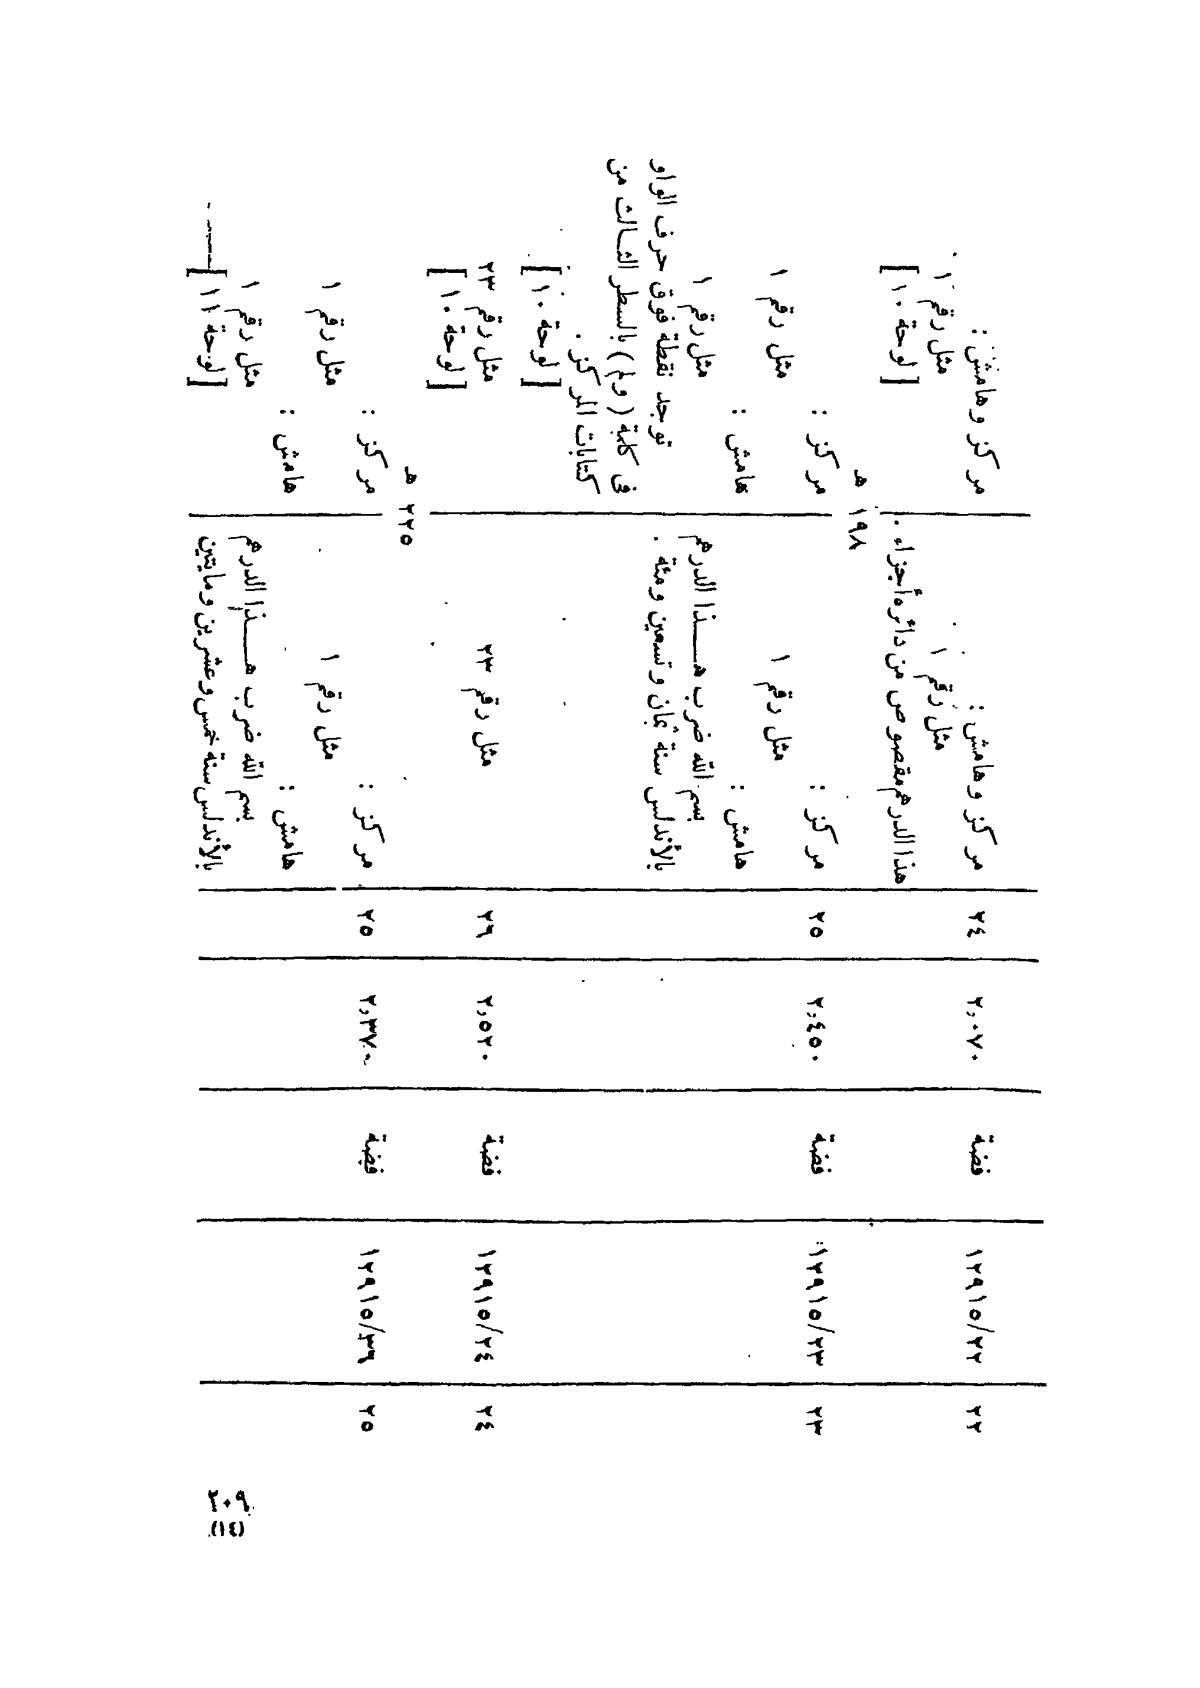 ٢٢
١٢٩١٥/٢٢
فضة
٢,٠٧٠
٢٤
مركز وهامش :
مثل رقم ١
هذا الدرهم مقصوص من دائره أجزاء .
مركز وهامش :
مثل رقم ١
[ لوحة ١٠ ]
١٩٨ هـ
٢٣
١٢٩١٥/٢٣
فضة
٢,٤٥٠
٢٥
مركز :
مثل رقم ١
هامش :
بسم الله ضرب هـذا الدرهم
بالأندلس سنة ثمان وتسعين ومئة .
مركز :
مثل رقم ١
هامش :
مثل رقم ١
توجد نقطة فوق حرف الواو
فى كلمة (ولم) بالسطر الثالث من
كتابات المركز .
[ لوحة ١٠ ]
٢٤
١٢٩١٥/٢٤
فضة
٢,٥٢٠
٢٦
مثل رقم ٢٣
مثل رقم ٢٣
[ لوحة ١٠ ]
٢٢٥ هـ
٢٥
١٢٩١٥/٣٦
فضة
٢,٣٧٠
٢٥
مركز :
مثل رقم ١
هامش :
بسم الله ضرب هـذا الدرهم
بالأندلس سنة خمس وعشرين ومايتين
مركز :
مثل رقم ١
هامش :
مثل رقم ١
[ لوحة ١١ ]
٢٠٩
(١٤)